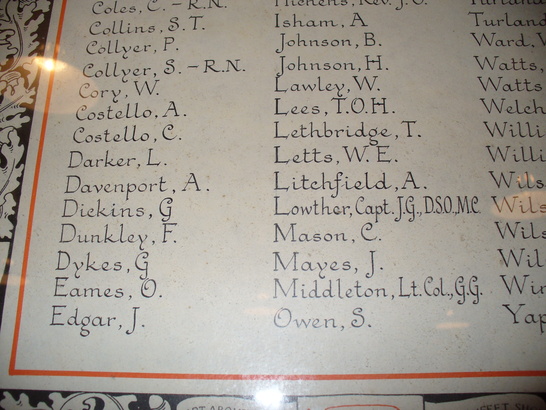 Coles, C. - R.N.
Collins, S. T.
Collyer, P.
Collyer, S. - R.N.
Cory, W.
Costello, A.
Costello, C.
Darker, L.
Davenport, A.
Dickins, G
Dunkley, F.
Dykes, G
Eames, O.
Edgar, J.
Isham, A
Johnson, B.
Johnson, H.
Lawley, W.
Lees, T.O.H.
Lethbridge, T.
Letts, W. E.
Litchfield, A.
Lowther, Capt. J.G., D.S.O., M.C.
Mason, C.
Mayes, J.
Middleton, Lt. Col., G.G.
Owen, S.
Turland
Ward,
Watts,
Watts
Welch
Willi
Willi
Wils
Wils
Wils
Wil
Win
Yap